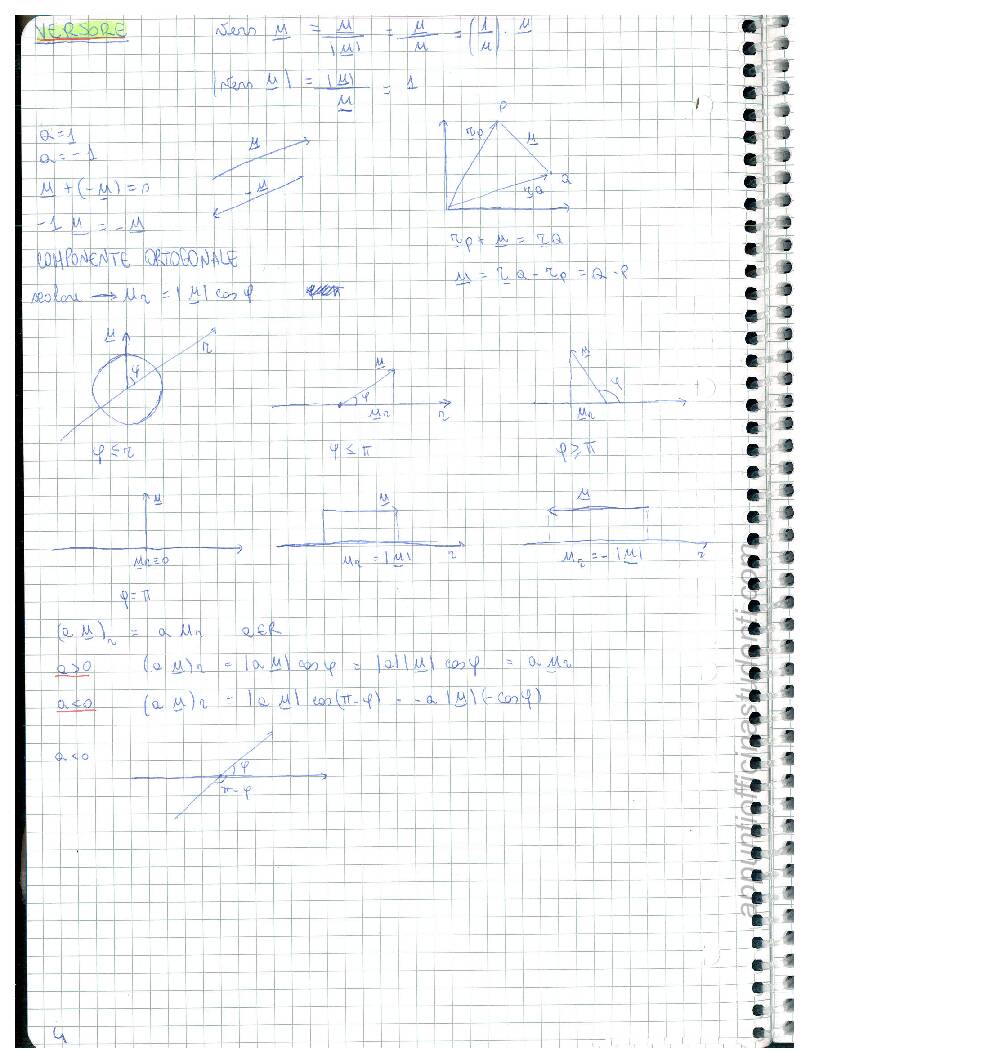 VERSORE
vers u = u/|u| = u/u = (1/u) · u
|vers u| = |u|/u = 1
a=1
a=-1
u + (-u) = 0
-1 u = -u
u
-u
P
r_P
u
Q
r_Q
r_P + u = r_Q
u = r_Q - r_P = Q - P
COMPONENTE ORTOGONALE
scalare → u_r = |u| cos φ
u
r
φ
φ ≤ r
u
φ
u_r
r
φ ≤ π
u
φ
u_r
φ ≥ π
u
u_r=0
φ = π
u
u_r = |u|
r
u
u_r = -|u|
r
(a u)_r = a u_r a∈R
a>0 (a u)_r = |a u| cos φ = |a||u| cos φ = a u_r
a<0 (a u)_r = |a u| cos(π-φ) = -a |u| (-cos φ)
a<0
φ
π-φ
4
appuntiofficinastudentiorg